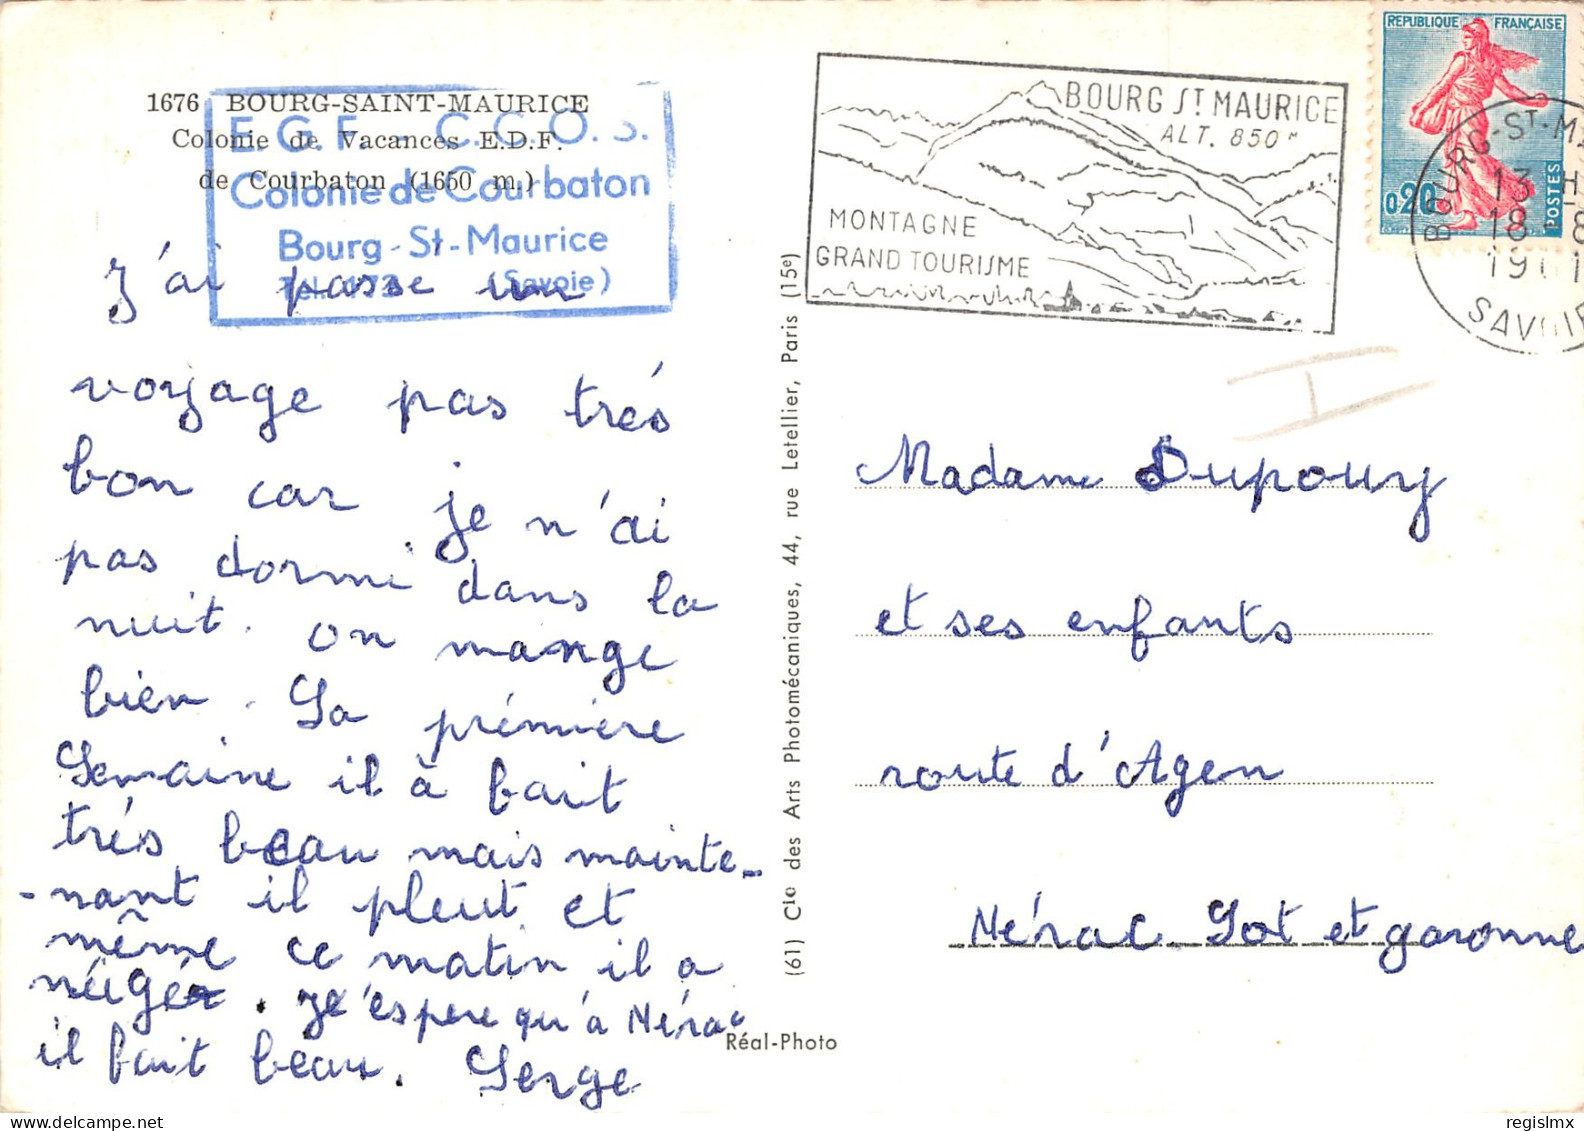 1676 BOURG-SAINT-MAURICE
Colonie de Vacances E.D.F.
de Courbaton (1650 m.)
E.G.F. - C.C.O.S.
Colonie de Courbaton
Bourg-St-Maurice
Tel. 173 (Savoie)
J'ai passe un
voyage pas trés
bon car je n'ai
pas dormi dans la
nuit. on mange
bien. La prémiere
Semaine il à fait
trés beau mais mainte-
-nant il pleut et
même ce matin il a
néigér. Je éspere qu'a Nérac
il fait beau. Serge
(61) Cie des Arts Photomécaniques, 44, rue Letellier, Paris (15e)
Réal-Photo
BOURG ST MAURICE
ALT. 850 M
MONTAGNE
GRAND TOURISME
REPUBLIQUE FRANÇAISE
0,20
POSTES
BOURG-ST-MA
13 H
18 -8
1961
SAVOIE
I
Madame Dupouy
et ses enfants
route d'Agen
Nérac Lot et garonne
regislmx